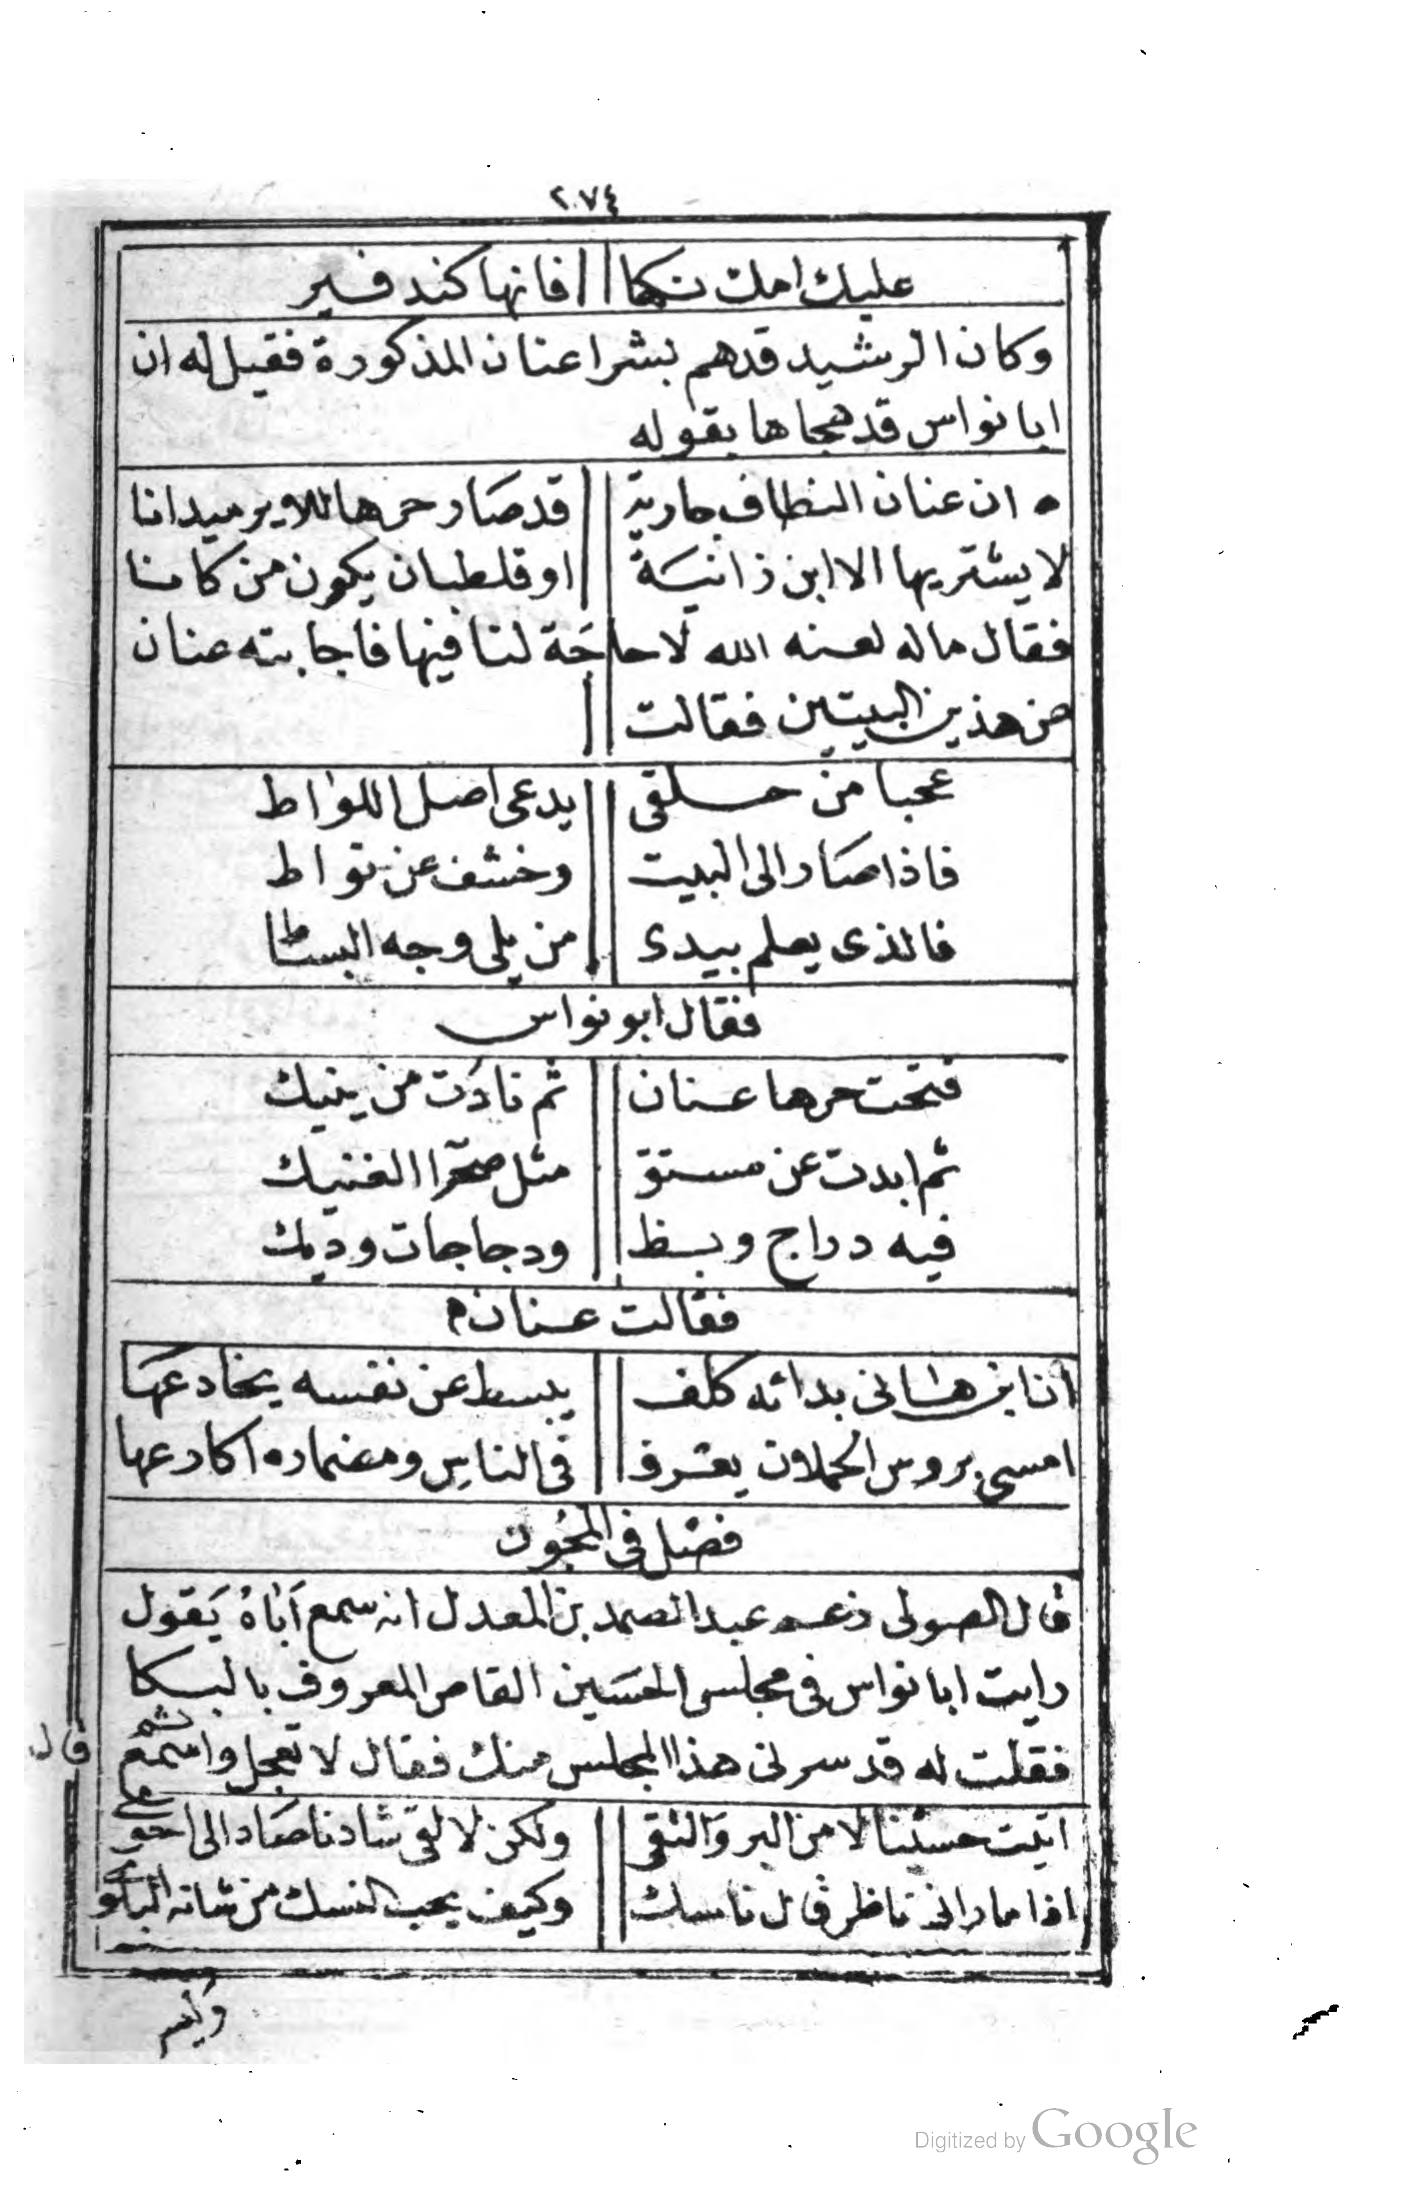 ٢٠٧٤
عليك امك نكها فانها كند فير
وكان الرشيد قدهم بشرا عنان المذكورة فقيل له ان
ابا نواس قد هجاها بقوله
ان عنان النطاف جارية قد صار حرها للاير ميدانا
لا يشتريها الا ابن زانية او قلطبان يكون من كانا
فقال ماله لعنه الله لا حاجة لنا فيها فاجابته عنان
عن هذين البيتين فقالت
عجبا من حلقى يدعى اصل اللواط
فاذا صار الى البيت وخشف عن تواط
فالذى يعلم بيدى من يلى وجه البساط
فقال ابو نواس
فتحت حرها عنان ثم نادت من ينيك
ثم ابدت عن مستو مثل صحرا الفنيك
فيه دراج وبط ودجاجات وديك
فقالت عنان
ان ابن هانى بدائه كلف يبسط عن نفسه يخادعها
امسى بروس الحملان يعترف فى الناس ومضماره اكارعها
فصل فى المجون
قال الصولى زعم عبد الصمد بن المعدل انه سمع اباه يقول
رايت ابا نواس فى مجلس الحسين القاص المعروف بالبكا
فقلت له قد سرنى هذا المجلس منك فقال لا تعجل واسمع ثم
قال
اتيت حسينا لا من البر والتقى ولكن لالقى شادنا صاد الى
اذا ما رانى ناظر قال ناسك وكيف يحب النسك من شانه
وليس
Digitized by Google